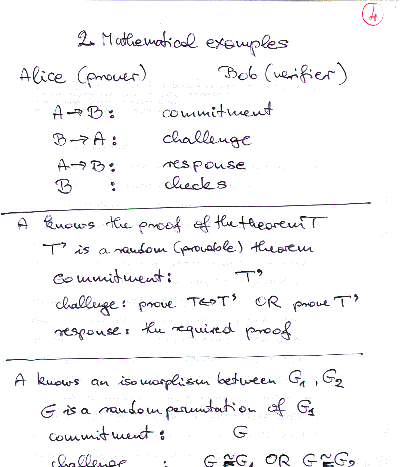 4
2. Mathematical examples
Alice (prover) Bob (verifier)
A → B : commitment
B → A : challenge
A → B : response
B : checks
A knows the proof of the theorem T
T' is a random (provable) theorem
commitment : T'
challenge : prove T⇔T' OR prove T'
response : the required proof
A knows an isomorphism between G₁, G₂
G is a random permutation of G₁
commitment : G
challenge : G ≅ G₁ OR G ≅ G₂